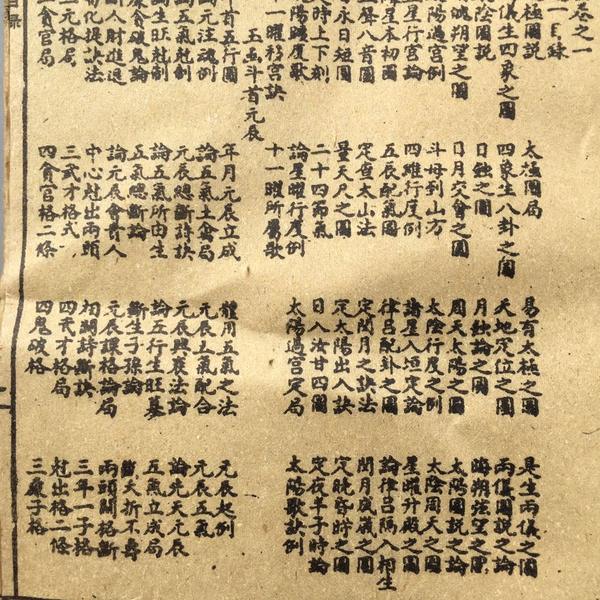 卷之一
一目錄
極圖說 太極圖局 易有太極之圖 是生兩儀之圖
儀生四象之圖 四象生八卦之圖 天地定位之圖 兩儀圖說之論
陰圖說 日蝕之圖 月蝕論之圖 晦朔弦望之圖
魄朔望之圖 日月交會之圖 周天太陽之圖 太陽圖說之論
陽過宮例 斗母到山方 太陰行度之例 太陰周天之圖
星行宮論 四維行度例 諸星入垣定論 星曜升殿之圖
星本初圖 五辰配氣圖 律呂配卦之圖 論律呂隔八相生
聲八音圖 定查太山法 定閏月之訣法 閏月成歲之圖
永日短圖 量天尺之圖 定太陽出入訣 定昏時之圖
時上下刻 二十四節氣 日入汝廿四圖 定夜子時論
陽躔度歌 論星曜行度例 太陽過宮定局 太陽歌訣例
一曜移宮訣 十一曜所屬歌
玉函斗首元辰
首五行圖 年月元辰立成 體用五氣之法 元辰起例
元注魂例 論五氣土禽局 元辰五氣配合 元辰五氣
五氣尅制 元辰總斷詩訣 元辰興廢法論 論先天元辰
生旺尅制 論五氣所由生 論五行生旺墓 五氣立成局
貪破鬼論 五氣總斷論 斷生子孫論 斷夭折不壽
人財進退 論元辰會貴人 元辰課格論局 兩頭關格斷
化提訣法 中心尅出兩頭 初關詩斷訣 三年一子格
元格局 三武才格式 四武才格局 尅出格二條
貪官局 四貪官格二條 四鬼破格 三廉子格